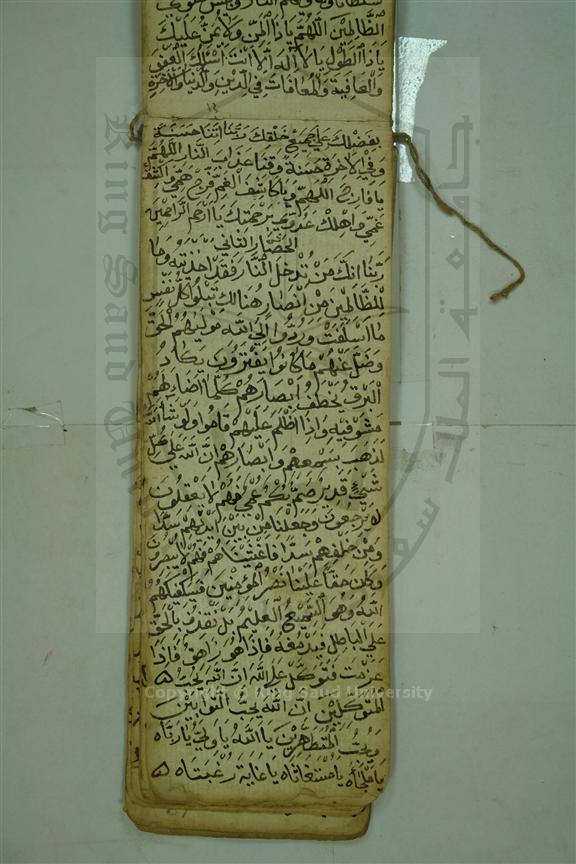 الظالمين اللهم يا ذا المن ولا يمن عليك
يا ذا الطول يا لا اله الا انت اسئلك العفو
والعافية والمعافات في الدين والدنيا والاخرة
بفضلك على جميع خلقك ربنا اتنا حسنة
وفي الاخرة حسنة وقنا عذاب النار اللهم
يا فارج اللهم ويا كاشف الغم فرج همي اكشف
غمي واهلك عدوي برحمتك يا ارحم الراحمين
الحصار الثاني
ربنا انك من تدخل النار فقد اخزيته وما
للظالمين من انصار هنالك تبلوا كل نفس
ما اسلفت وردوا الى الله موليهم الحق
وضل عنهم ما كانوا يفترون يكاد
البرق يخطف ابصارهم كلما اضاء لهم
مشوا فيه واذا اظلم عليهم قاموا ولو شاء الله
لذهب بسمعهم وابصارهم ان الله على كل
شيء قدير صم بكم عمي فهم لا يعقلون
لا يرجعون وجعلنا من بين ايديهم سدا
ومن خلفهم سدا فاغشيناهم فهم لا يبصرون
وكان حقا علينا نصر المؤمنين فسيكفيكهم
الله وهو السميع العليم بل نقذف بالحق
على الباطل فيدمغه فاذا هو زاهق فاذا
عزمت فتوكل على الله ان الله يحب
المتوكلين ان الله يحب التوابين
ويحب المتطهرين يا الله يا ولي يا رباه
يا ملجأه يا مستغاثاه يا غاية رغبتاه
Copyright © King Saud University